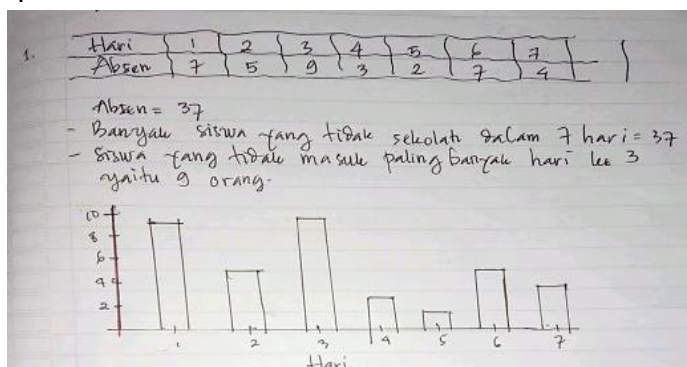 1.
Hari 1 2 3 4 5 6 7
Absen 7 5 9 3 2 7 4
Absen = 37
- Banyak siswa yang tidak sekolah dalam 7 hari = 37
- Siswa yang tidak masuk paling banyak hari ke 3
yaitu 9 orang.
10
8
6
4
2
1 2 3 4 5 6 7
Hari